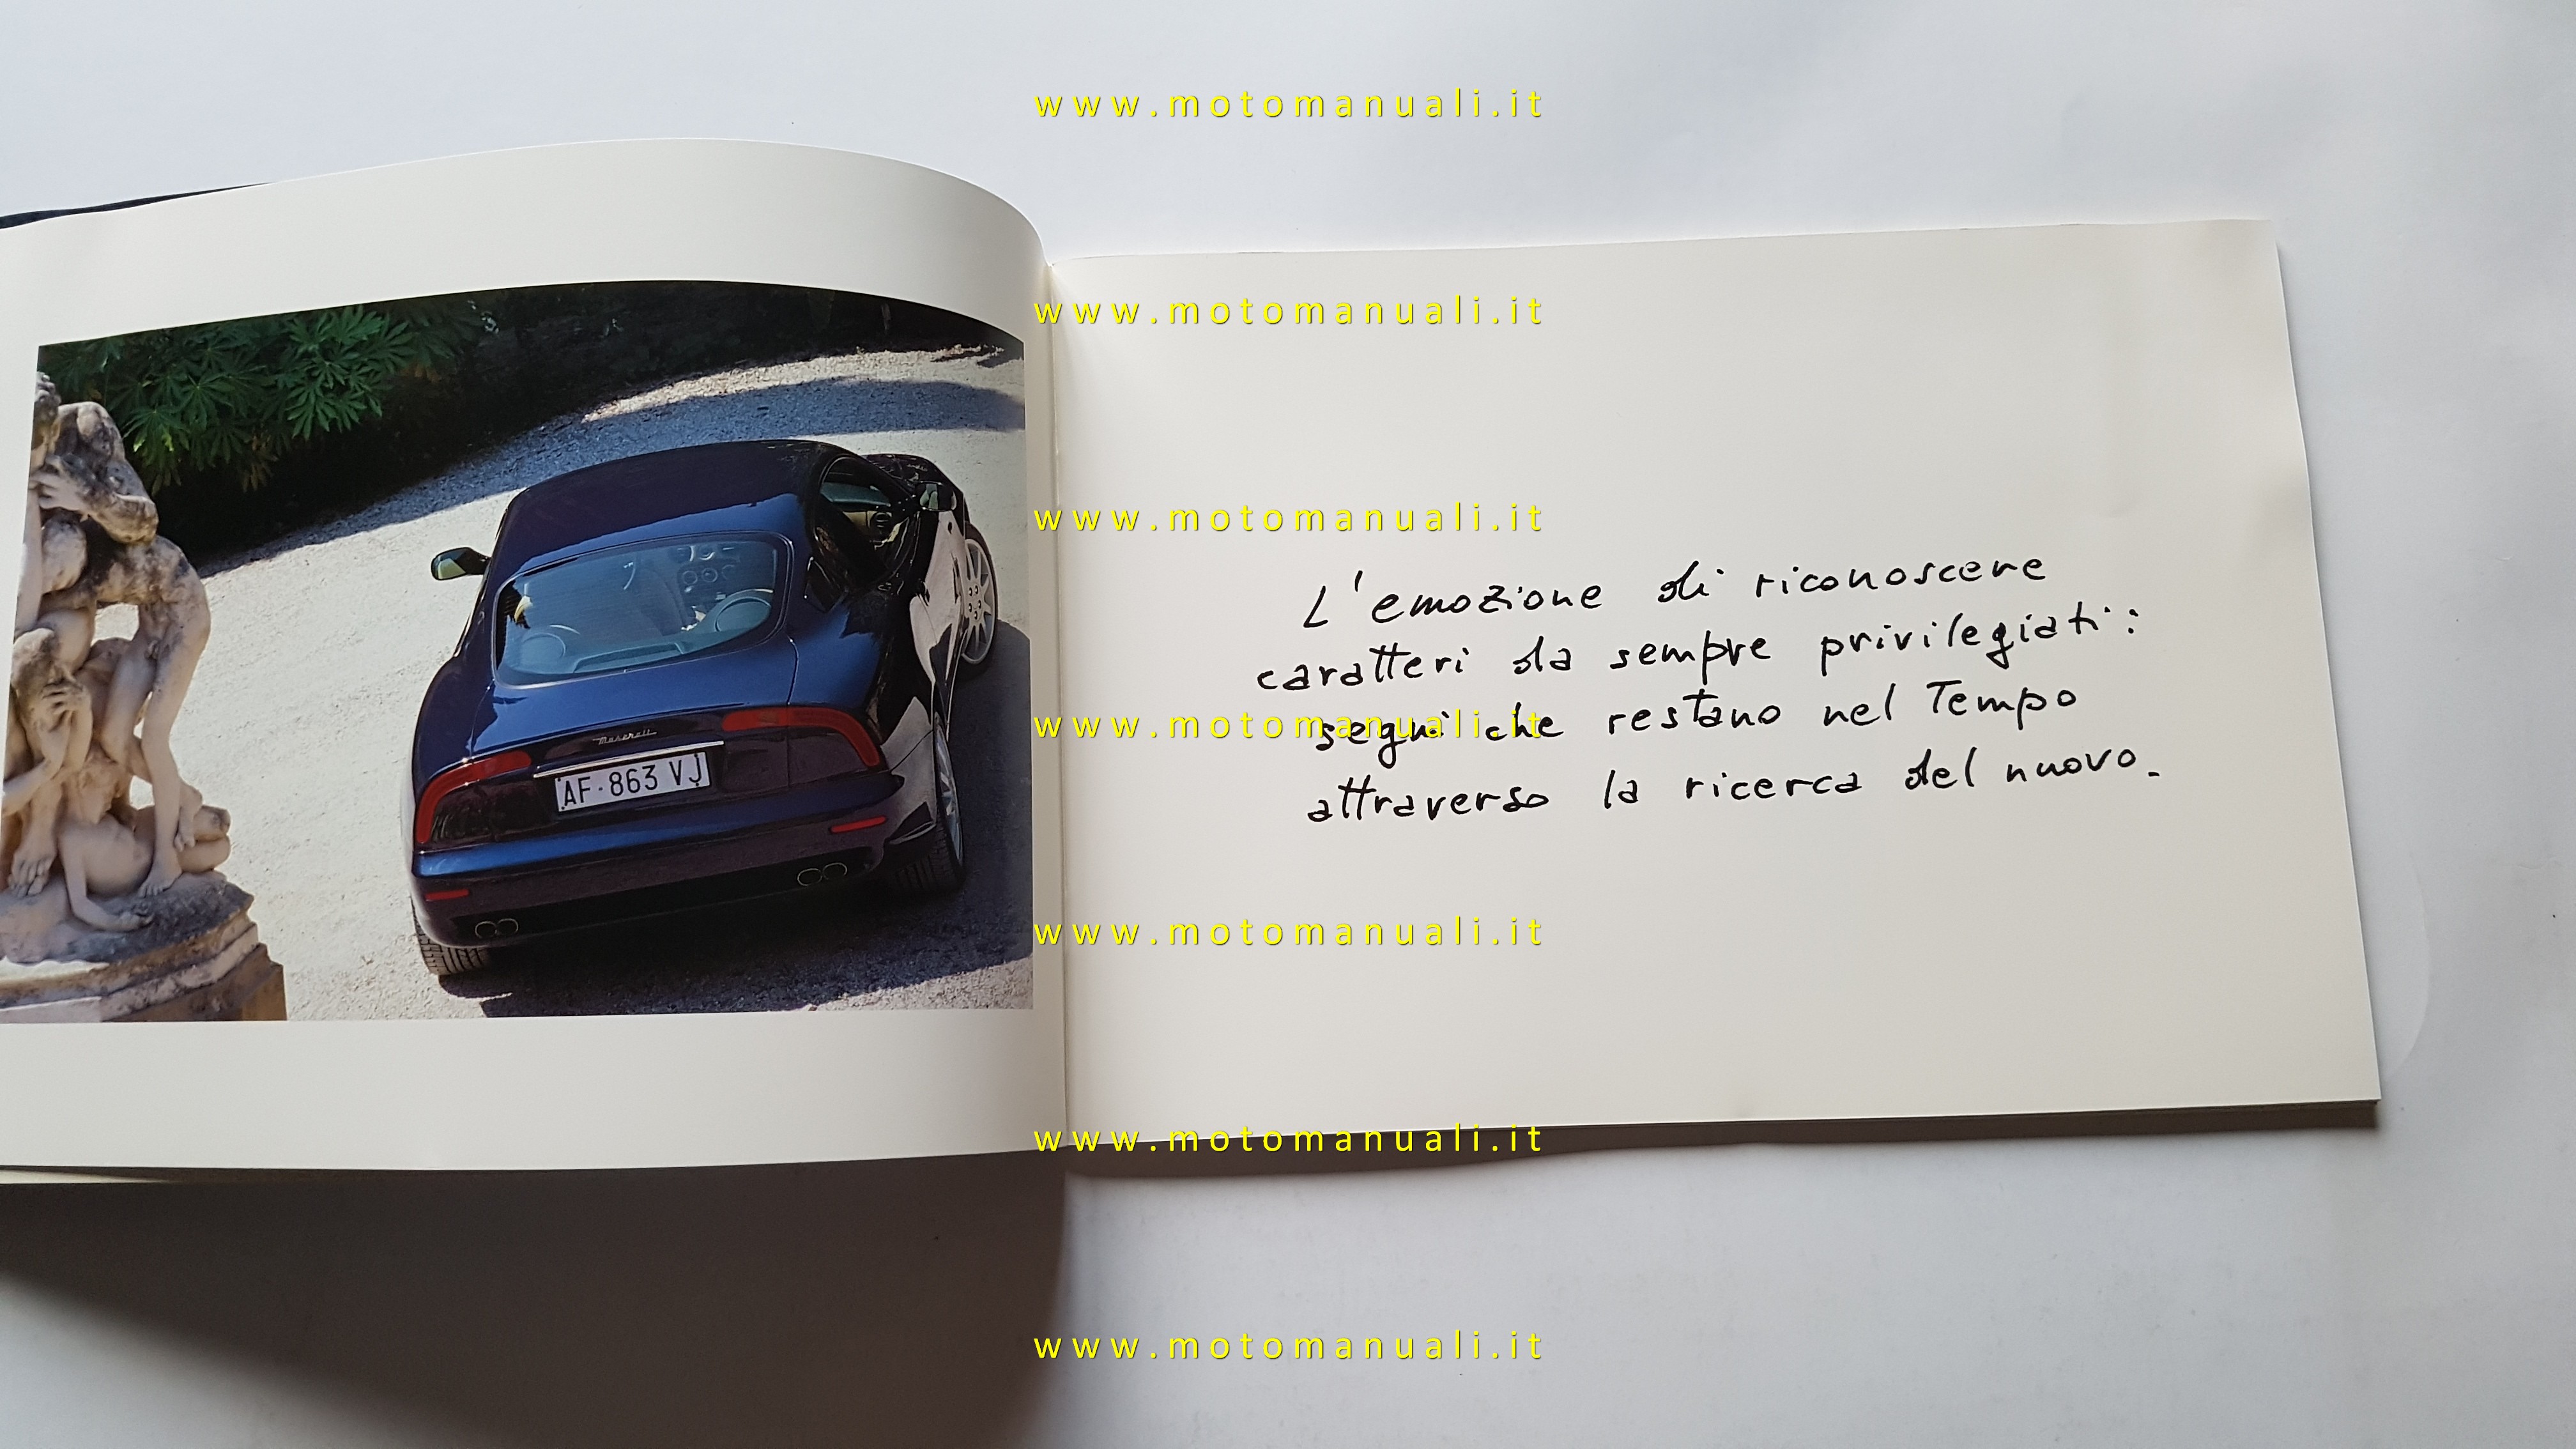 www.motomanuali.it
www.motomanuali.it
www.motomanuali.it
L'emozione di riconoscere
caratteri da sempre privilegiati:
segni che restano nel Tempo
attraverso la ricerca del nuovo.
www.motomanuali.it
Maserati
AF·863 VJ
www.motomanuali.it
www.motomanuali.it
www.motomanuali.it